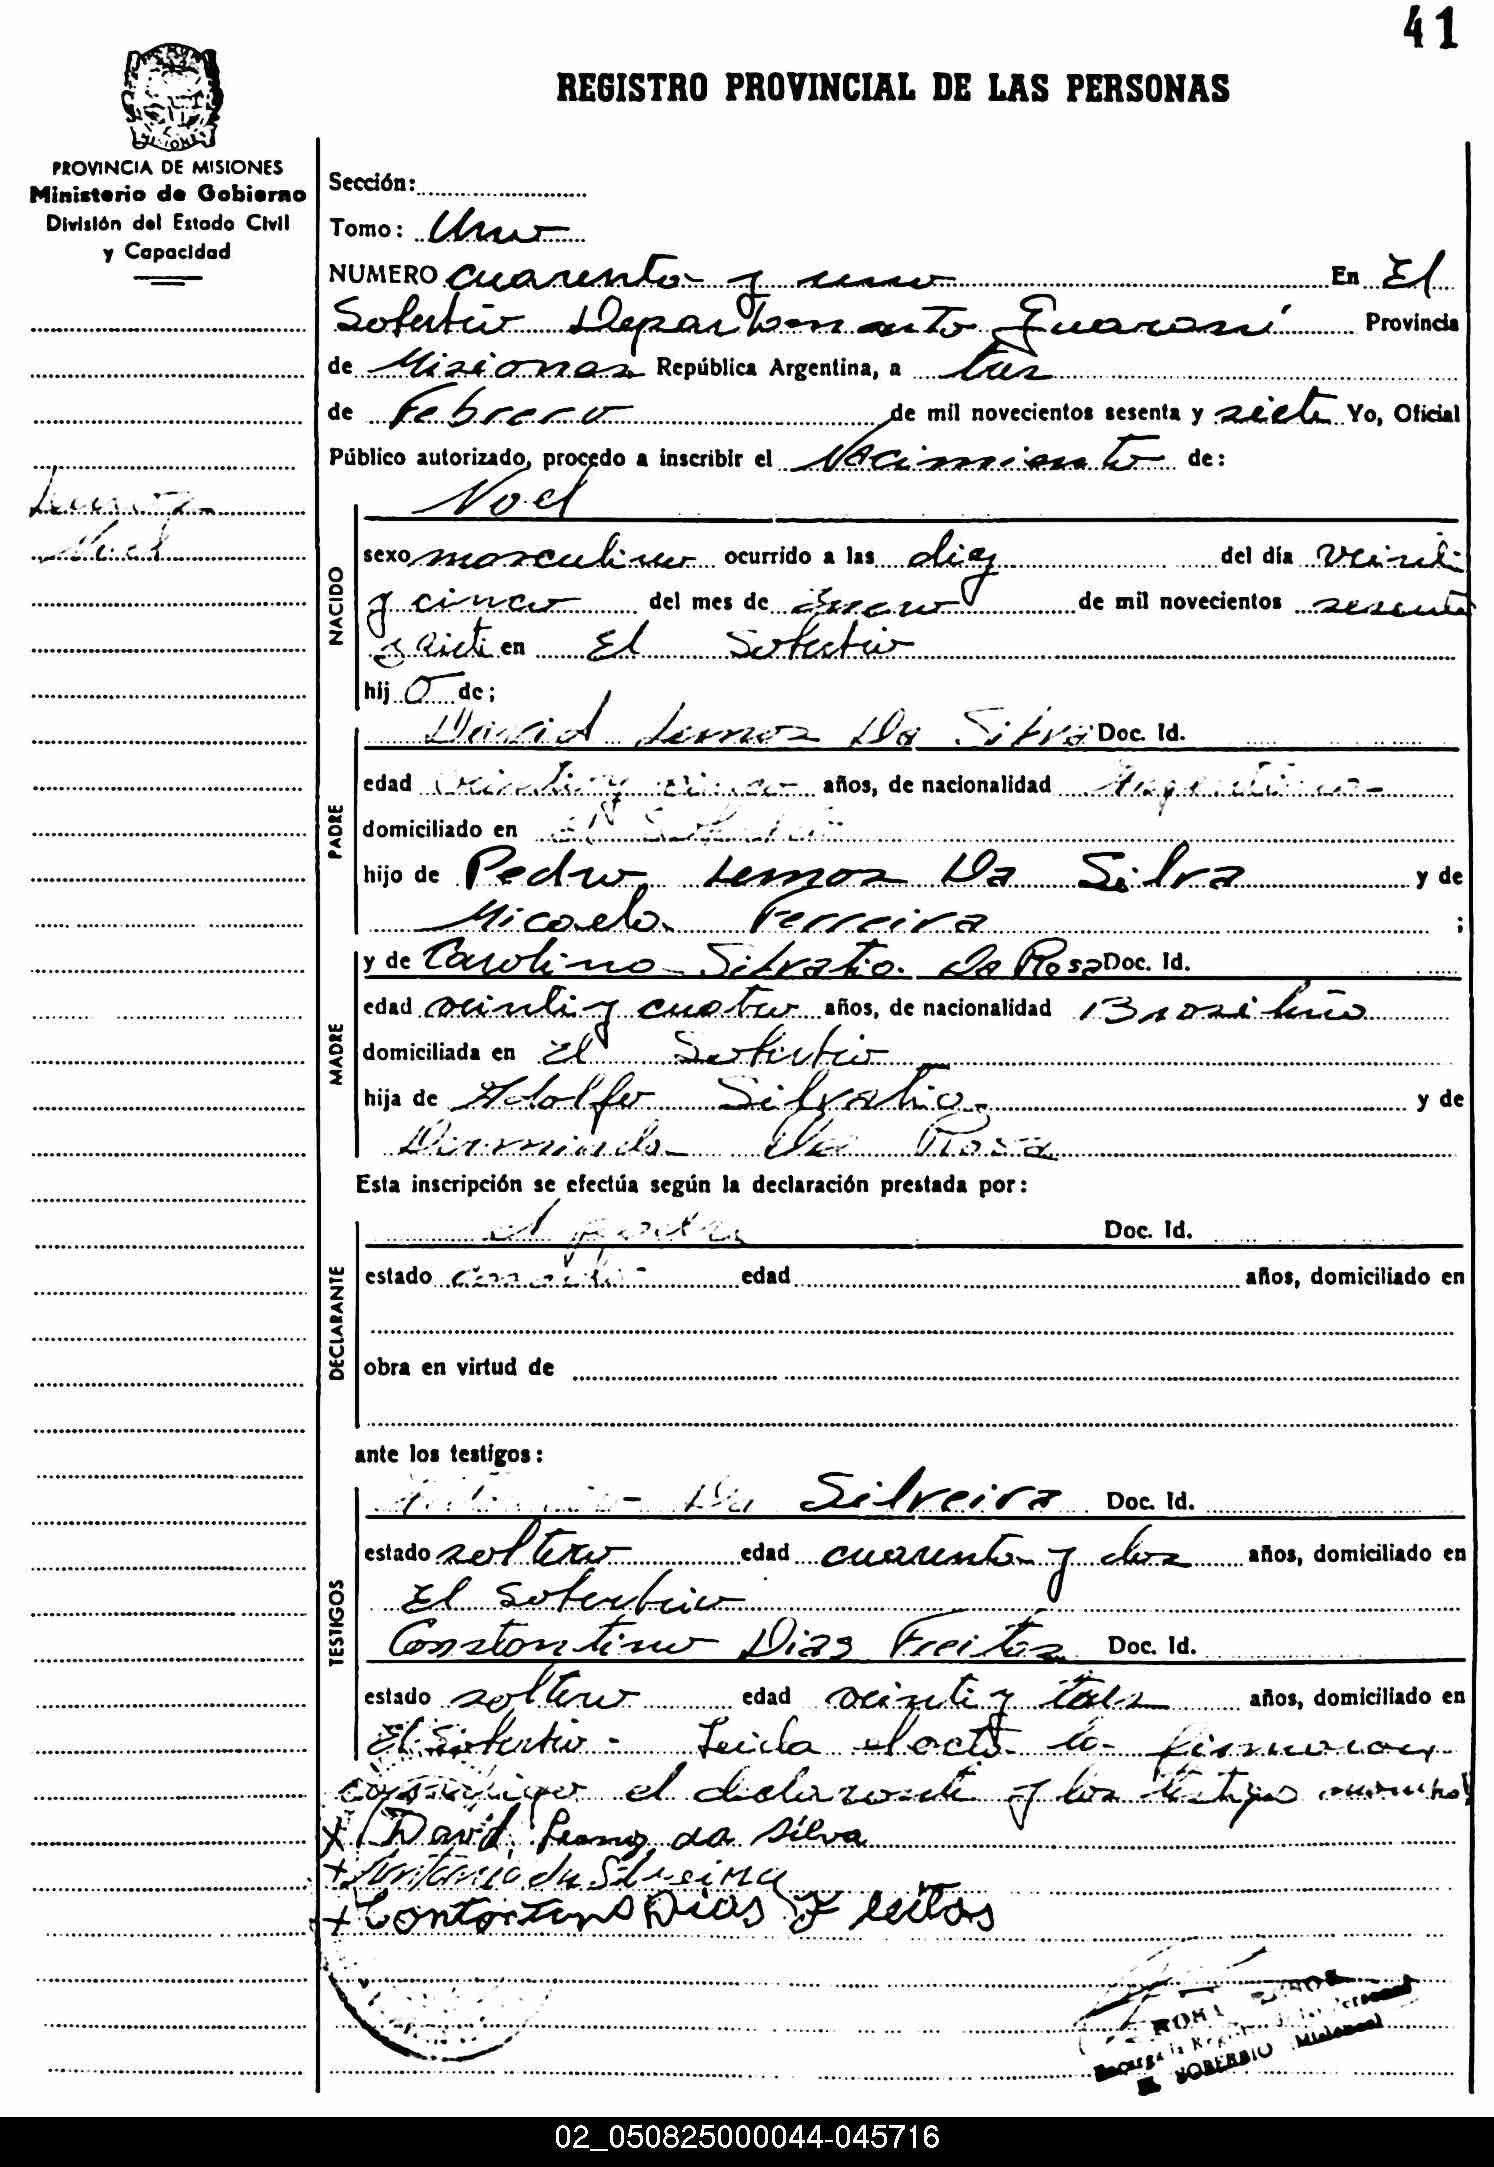 41
REGISTRO PROVINCIAL DE LAS PERSONAS
PROVINCIA DE MISIONES
Ministerio de Gobierno
División del Estado Civil
y Capacidad
Sección:
Tomo: Uno
NUMERO cuarenta y uno En El
Soberbio Departamento Guaraní Provincia
de Misiones República Argentina, a tres
de Febrero de mil novecientos sesenta y siete Yo, Oficial
Público autorizado, procedo a inscribir el Nacimiento de:
Lemos
Noel
Noel
NACIDO
sexo masculino ocurrido a las diez del día veinti
y cinco del mes de Enero de mil novecientos sesenta
y siete en El Soberbio
hijo de;
PADRE
David Lemos Da Silva Doc. Id.
edad veinti y cinco años, de nacionalidad Argentino
domiciliado en El Soberbio
hijo de Pedro Lemos Da Silva y de
Micaela Ferreira ;
MADRE
y de Carolina Silvatio Da Rosa Doc. Id.
edad veinti y cuatro años, de nacionalidad Brasileña
domiciliada en El Soberbio
hija de Adolfo Silvatio y de
Da Rosa
Esta inscripción se efectúa según la declaración prestada por:
DECLARANTE
el padre Doc. Id.
estado edad años, domiciliado en
obra en virtud de
ante los testigos:
TESTIGOS
Da Silveira Doc. Id.
estado soltero edad cuarenta y dos años, domiciliado en
El Soberbio
Constantino Dias Freitas Doc. Id.
estado soltero edad veinti y tres años, domiciliado en
El Soberbio - Leida el acta la firman
conmigo el declarante y los testigos
x David Lemos da Silva
+ Antonio da Silveira
+ Dias Freitas
EL SOBERBIO (Misiones)
02_050825000044-045716